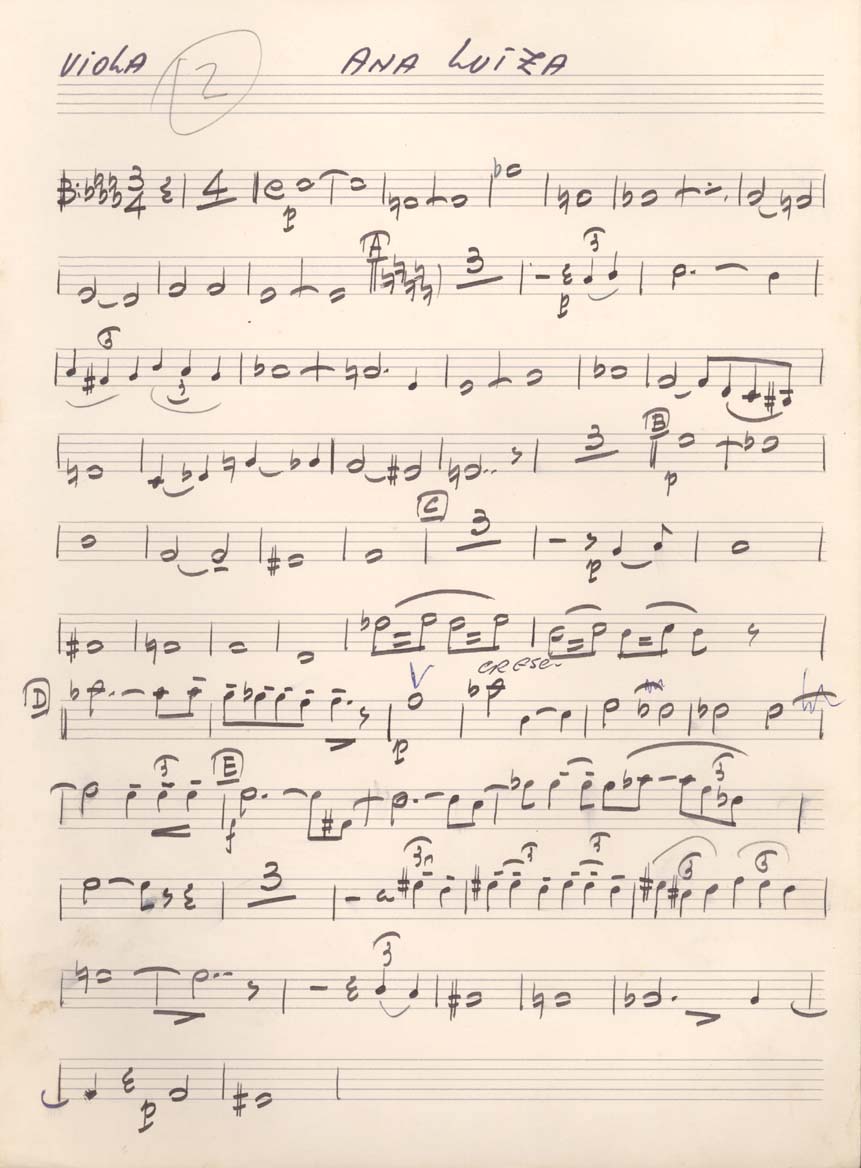 VIOLA 12 ANA LUIZA
3 4 4 C p
A 3 3 p
3 3
3 B p
C 3 p
CRESC.
D p
3 E f 3
3 3 3 3 3 3
3
p